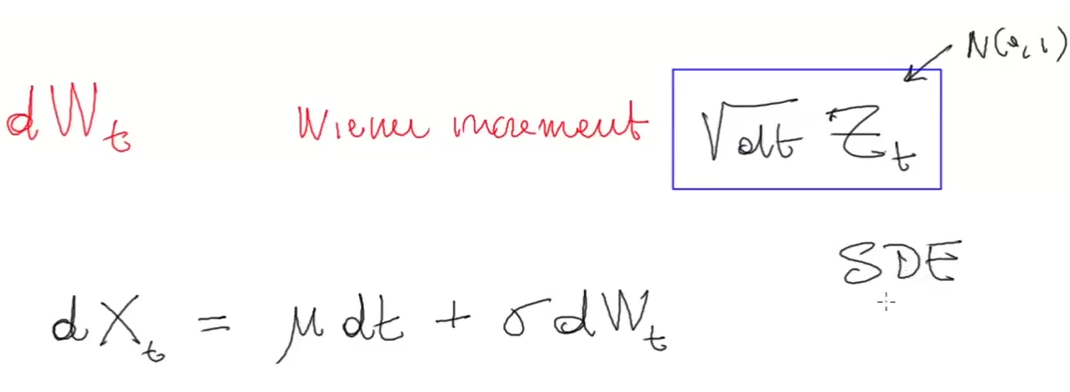 N(0,1)
dW_t Wiener increment √dt Z_t
SDE
dX_t = μ dt + σ dW_t